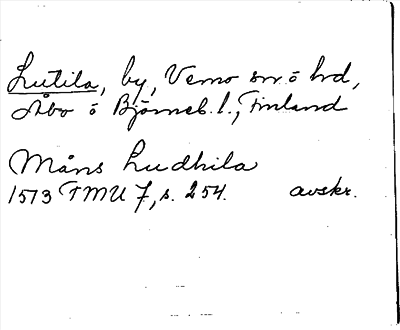 Lutila, by, Vemo sn. ö hd,
Åbo ö Björneb. l., Finland
Måns Ludhila
1573 TMU 7, s. 254. avskr.